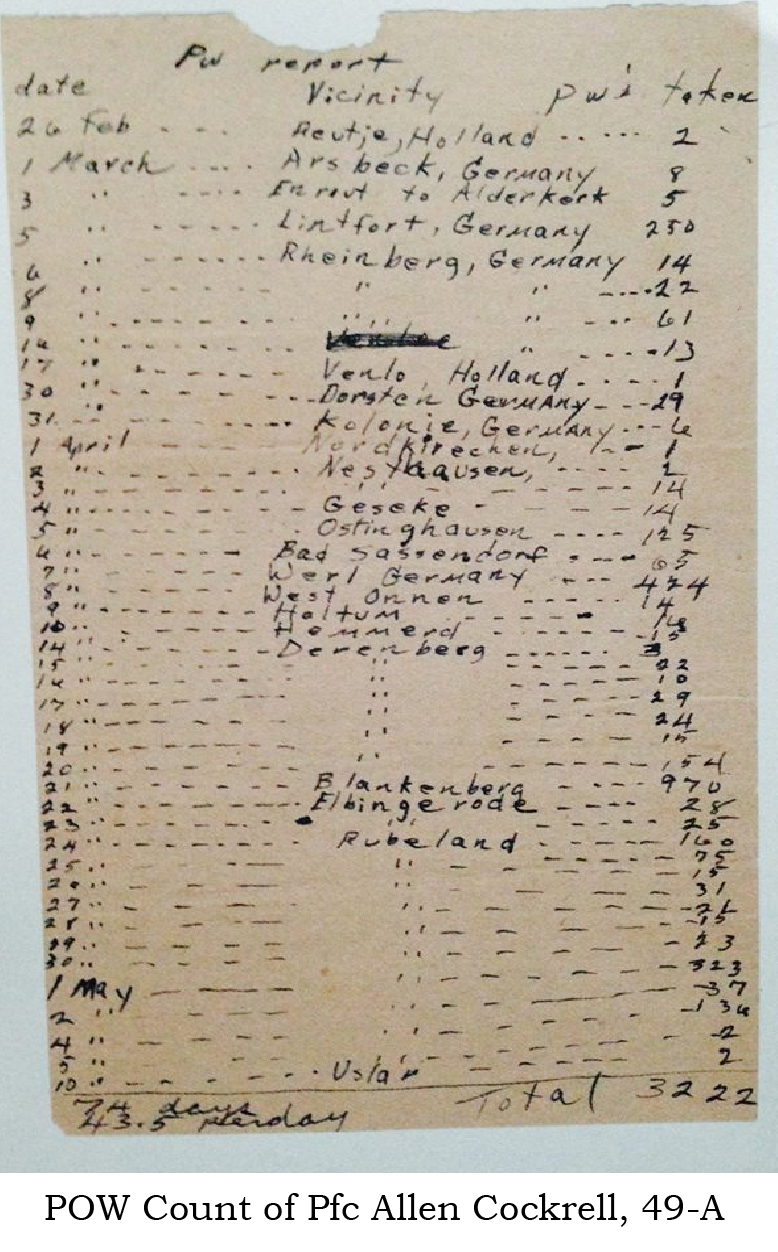 PW report
date Vicinity PW's taken
26 Feb - - - Reutje, Holland ..... 2
1 March .... Arsbeck, Germany 8
3 " ..... Enrout to Alderkerk 5
5 " ...... Lintfort, Germany 250
6 " ...... Rheinberg, Germany 14
8 " - - - - - " " ....22
9 " - - - - - " " --- 61
" ....13
17 " - - - - - Venlo, Holland .... 1
30 " - - - - - Dorsten Germany - - -29
31 - - - - - Kolonie, Germany - - - 6
1 April - - - - - Nordkirechen, - - 1
2 " - - - - - Nesthausen, - - - -
3 " - - - - - " - - - - 14
4 " - - - - - Geseke - - - 14
5 " - - - - - Ostinghausen - - - - 125
6 " - - - - - Bad Sassendorf - - - 65
7 " - - - - - Werl Germany - - - 424
8 " - - - - - West Onnen - - - - 14
9 " - - - - - Holtum - - - - -
10 " - - - - - Hemmerd - - - - - 15
14 " - - - - - Derenberg - - - - - 3
15 " - - - - - " - - - - - 22
16 " - - - - - " - - - - - 10
17 " - - - - - " - - - - - 29
18 " - - - - - " - - - - - 24
19 " - - - - - " - - - - 15
20 " - - - - - - - - - - 154
21 " - - - - - Blankenberg - - - - 970
22 " - - - - - Elbingerode - - - - 28
23 " - - - - - " - - - - - 25
24 " - - - - - Rubeland - - - - - 160
25 " - - - - - " - - - - - 75
26 " - - - - - - - - - - 15
27 " - - - - - " - - - - - 31
28 " - - - - - " - - - - -
29 " - - - - - " - - - - - 15
30 " - - - - - " - - - - - 23
1 May - - - - " - - - - - 323
2 " - - - - - " - - - - - 37
4 " - - - - - " - - - - - 136
5 " - - - - - " - - - - - 2
10 " - - - - - Uslar - - - - - 2
74 days Total 3222
43.5 Perday
POW Count of Pfc Allen Cockrell, 49-A